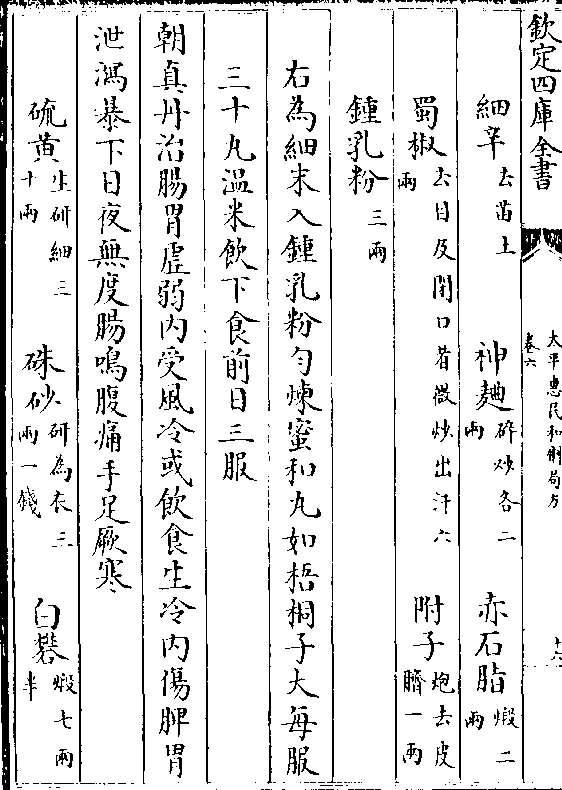 欽定四庫全書
太平惠民和劑局方
卷六
十六
細辛去苗土 神麯碎炒各二兩 赤石脂煅二兩
蜀椒去目及閉口者微炒出汗六兩 附子炮去皮臍一兩
鍾乳粉三兩
右為細末入鍾乳粉勻煉蜜和丸如梧桐子大每服
三十丸温米飲下食前日三服
朝真丹治腸胃虛弱内受風冷或飲食生冷内傷脾胃
泄瀉暴下日夜無度腸鳴腹痛手足厥寒
硫黄生研細三十兩 硃砂研為衣三兩一錢 白礬煅七兩半